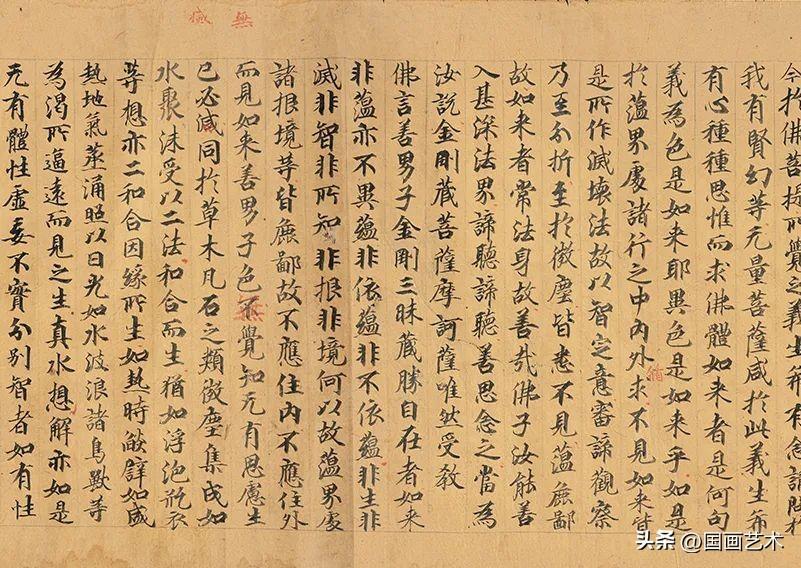 今於佛菩提所覺之義生希有念請
我有賢幻等无量菩薩咸於此義生希
有心種種思惟而求佛體如来者是何句
義為色是如来耶異色是如来乎如是
於蘊界處諸行之中内外求不見如来皆
是所作滅壞法故以智定意審諦觀察
乃至分折至於微塵皆悉不見蘊麁鄙
故如来者常法身故善哉佛子汝能善
入甚深法界諦聽諦聽善思念之當為
汝說金剛藏菩薩摩訶薩唯然受教
佛言善男子金剛三昧藏勝自在者如来
非蘊亦不異蘊非依蘊非不依蘊非生非
滅非智非所知非根非境何以故蘊界處
諸根境等皆麁鄙故不應住内不應住外
而見如来善男子色不覺知无有思慮生
已必滅同於草木凡石之類微塵集成如
水聚沫受以二法和合而生猶如浮泡瓶衣
等想亦二和合因緣所生如熱時燄譬如盛
熱地氣蒸涌照以日光如水波浪諸鳥獸等
為渴所逼遠而見之生真水想解亦如是
无有體性虛妄不實分別智者如有性
無
頭条 @国画艺术